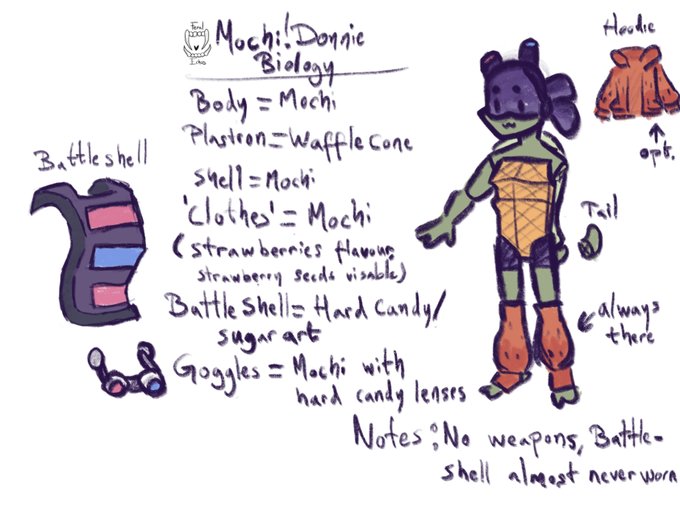 Feral
Echo
Mochi!Donnie
Biology
Body = Mochi
Plastron = Waffle cone
Shell = Mochi
'Clothes' = Mochi
(strawberries flavour,
strawberry seeds visable)
Battle Shell = Hard Candy/
sugar art
Goggles = Mochi with
hard candy lenses
Battleshell
Hoodie
opt.
Tail
always
there
Notes: No weapons, Battle-
shell almost never worn